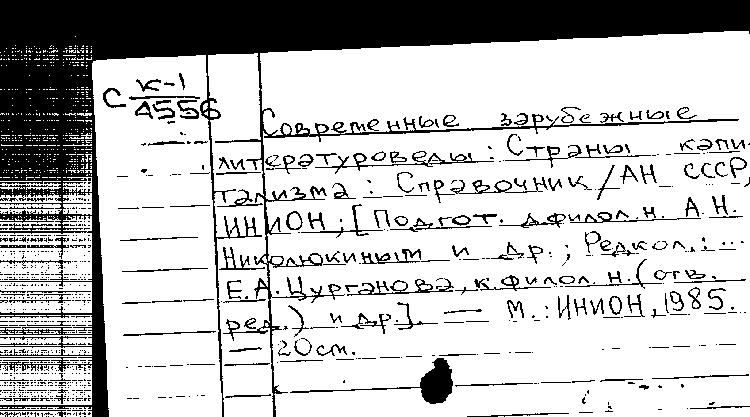 С К-1
4556
Современные зарубежные
литературоведы: Страны капи-
тализма: Справочник/АН СССР,
ИНИОН; [Подгот. д.филол.н. А.Н.
Николюкиным и др.; Редкол.: ...
Е.А.Цурганова, к.филол.н. (отв.
ред.) и др.]. — М.: ИНИОН, 1985.
— 20см.